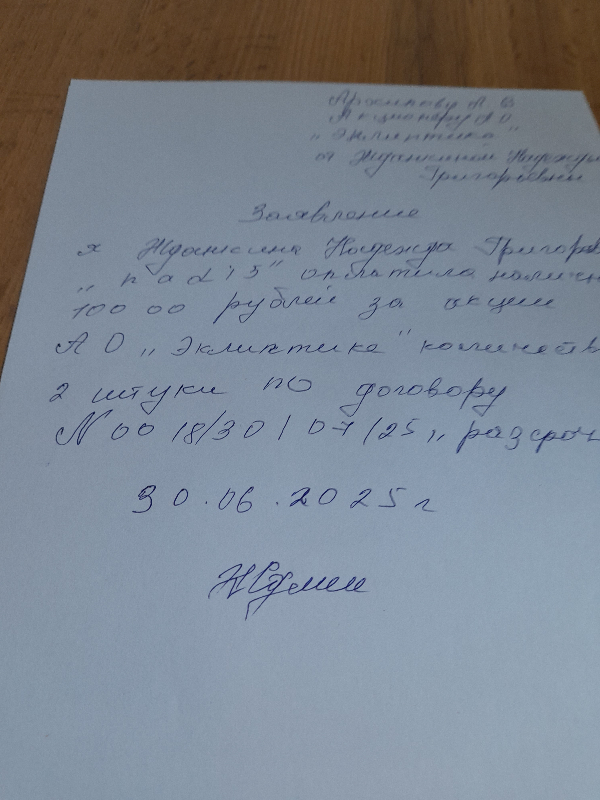 А. В
Акционеру АО
„Эклиптика"
от Жданкиной Надежды
Григорьевны
Заявление
я Жданкина Надежда Григорьев
оплатила налич
100 00 рублей за акции
АО „Эклиптика" количеств
2 штуки по договору
N 00 18/30/07/25, рассроч
30.06.2025 г